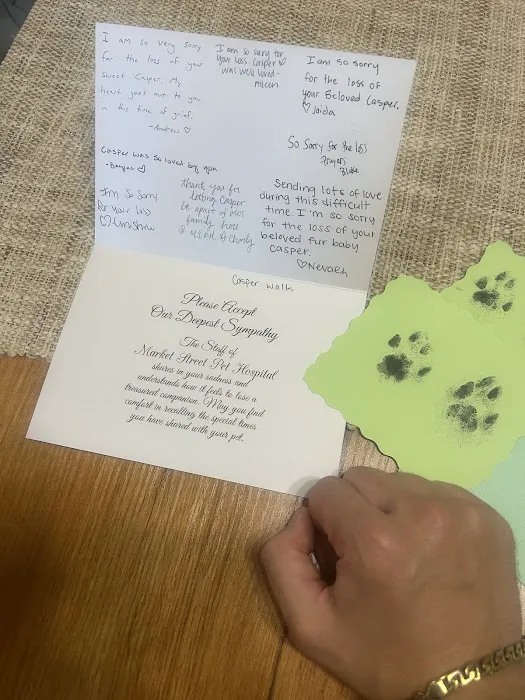 I am so very sorry
for the loss of your
sweet Casper. My
heart goes out to you
in this time of grief.
-Andrew ♡
I am so sorry for
your loss. Casper ♡
was well loved-
I am so sorry
for the loss of
your Beloved Casper.
♡ Jaida
So Sorry for the loss
Prayers
Blake
Casper was so loved by you
I'm so sorry
for your loss
Thank you for
letting Casper
be apart of our
family here
@ MSPH.
Sending lots of love
during this difficult
time. I'm so sorry
for the loss of your
beloved fur baby
Casper.
♡ Nevaeh
Casper
Please Accept
Our Deepest Sympathy
The Staff of
Market Street Pet Hospital
shares in your sadness and
understands how it feels to lose a
treasured companion. May you find
comfort in recalling the special times
you have shared with your pet.